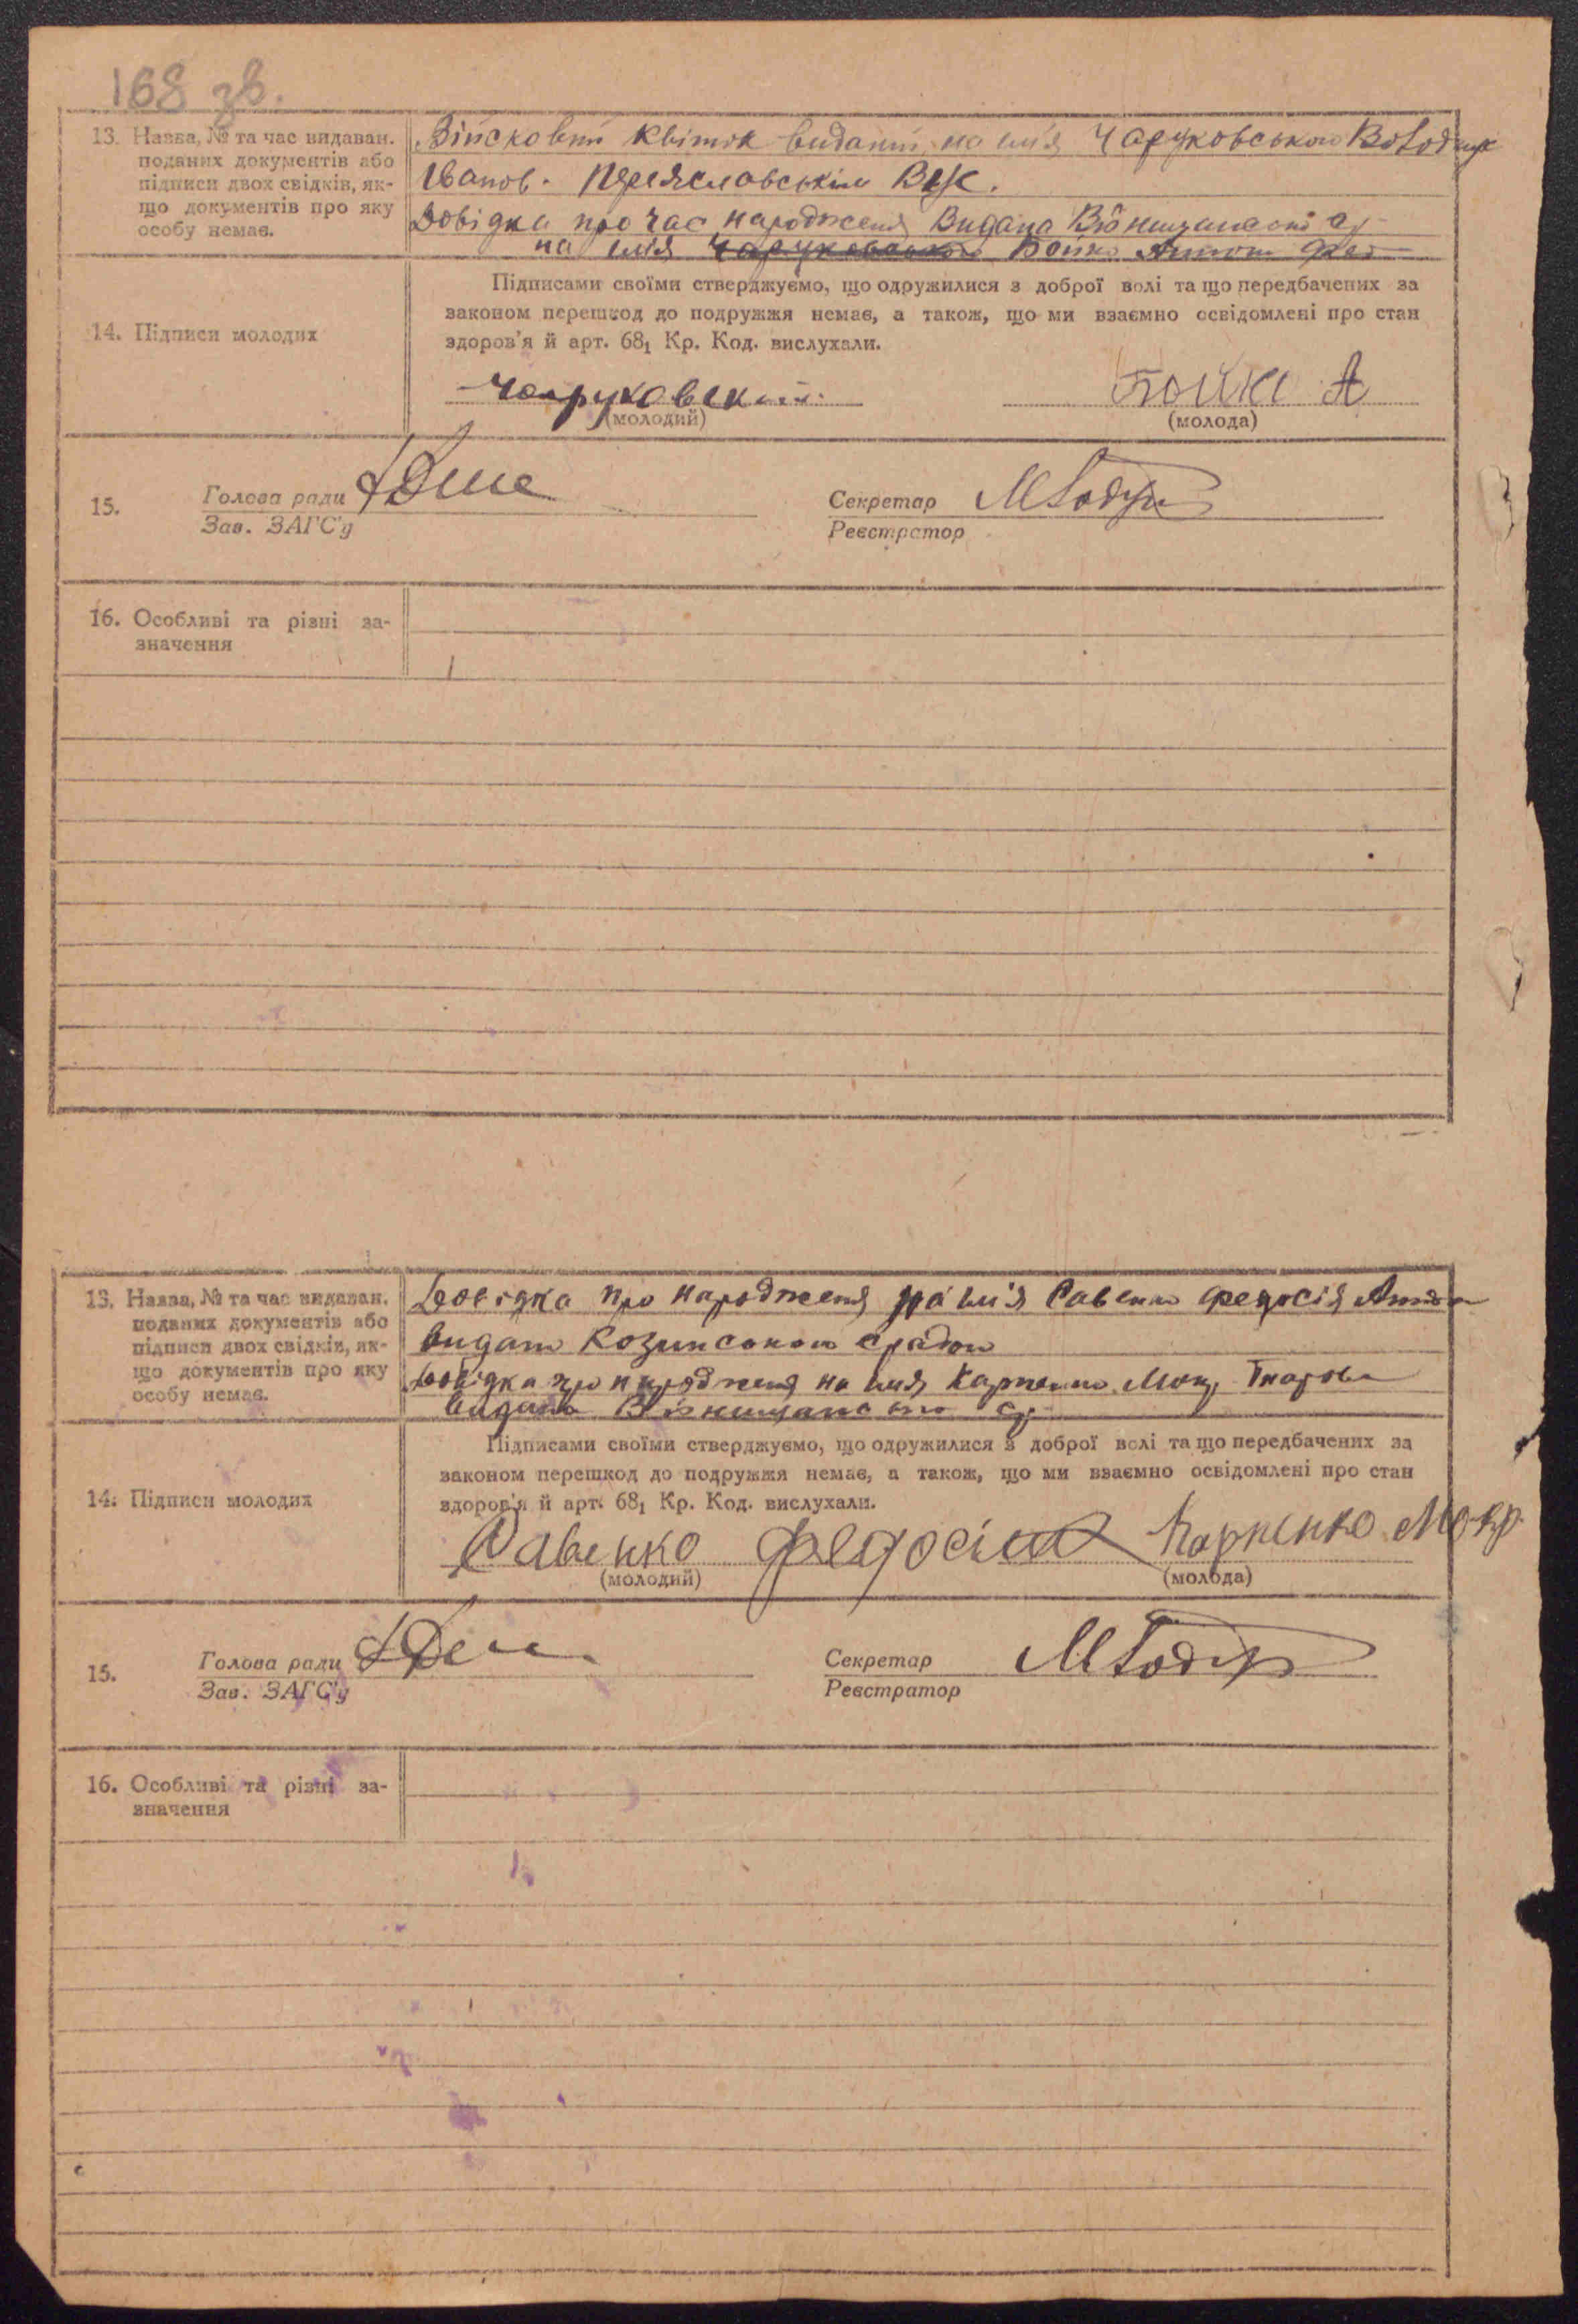 168 зв.
13. Назва, № та час видаван. поданих документів або підписи двох свідків, якщо документів про яку особу немає.
Війсковий квіток виданий на имя Чаруковського Володимир
Іванов. Переяславським ВРК.
Довідка про час народження Видана Вюнищанською с/
на имя Чаруковською Бойко Антон Фед
14. Підписи молодих
Підписами своїми стверджуємо, що одружилися з доброї волі та що передбачених за
законом перешкод до подружжя немає, а також, що ми взаємно освідомлені про стан
здоров'я й арт. 68₁ Кр. Код. вислухали.
Чаруковский
Бойко А
(молодий)
(молода)
15.
Голова ради
Зав. ЗАГС'у
Секретар
Реєстратор
16. Особливі та різні за-
значення
13. Назва, № та час видаван.
поданих документів або
підписи двох свідків, як-
що документів про яку
особу немає.
Довідка про народження на им'я Савенко Федосія
видано Козинською с/радою
Довідка про народження на имя Карпенко Мокр
видана Вюнищансько с/
14. Підписи молодих
Підписами своїми стверджуємо, що одружилися з доброї волі та що передбачених за
законом перешкод до подружжя немає, а також, що ми взаємно освідомлені про стан
здоров'я й арт. 68₁ Кр. Код. вислухали.
Савенко Карпенко Мокр
(молодий)
(молода)
15.
Голова ради
Зав. ЗАГС'у
Секретар
Реєстратор
16. Особливі та різні за-
значення